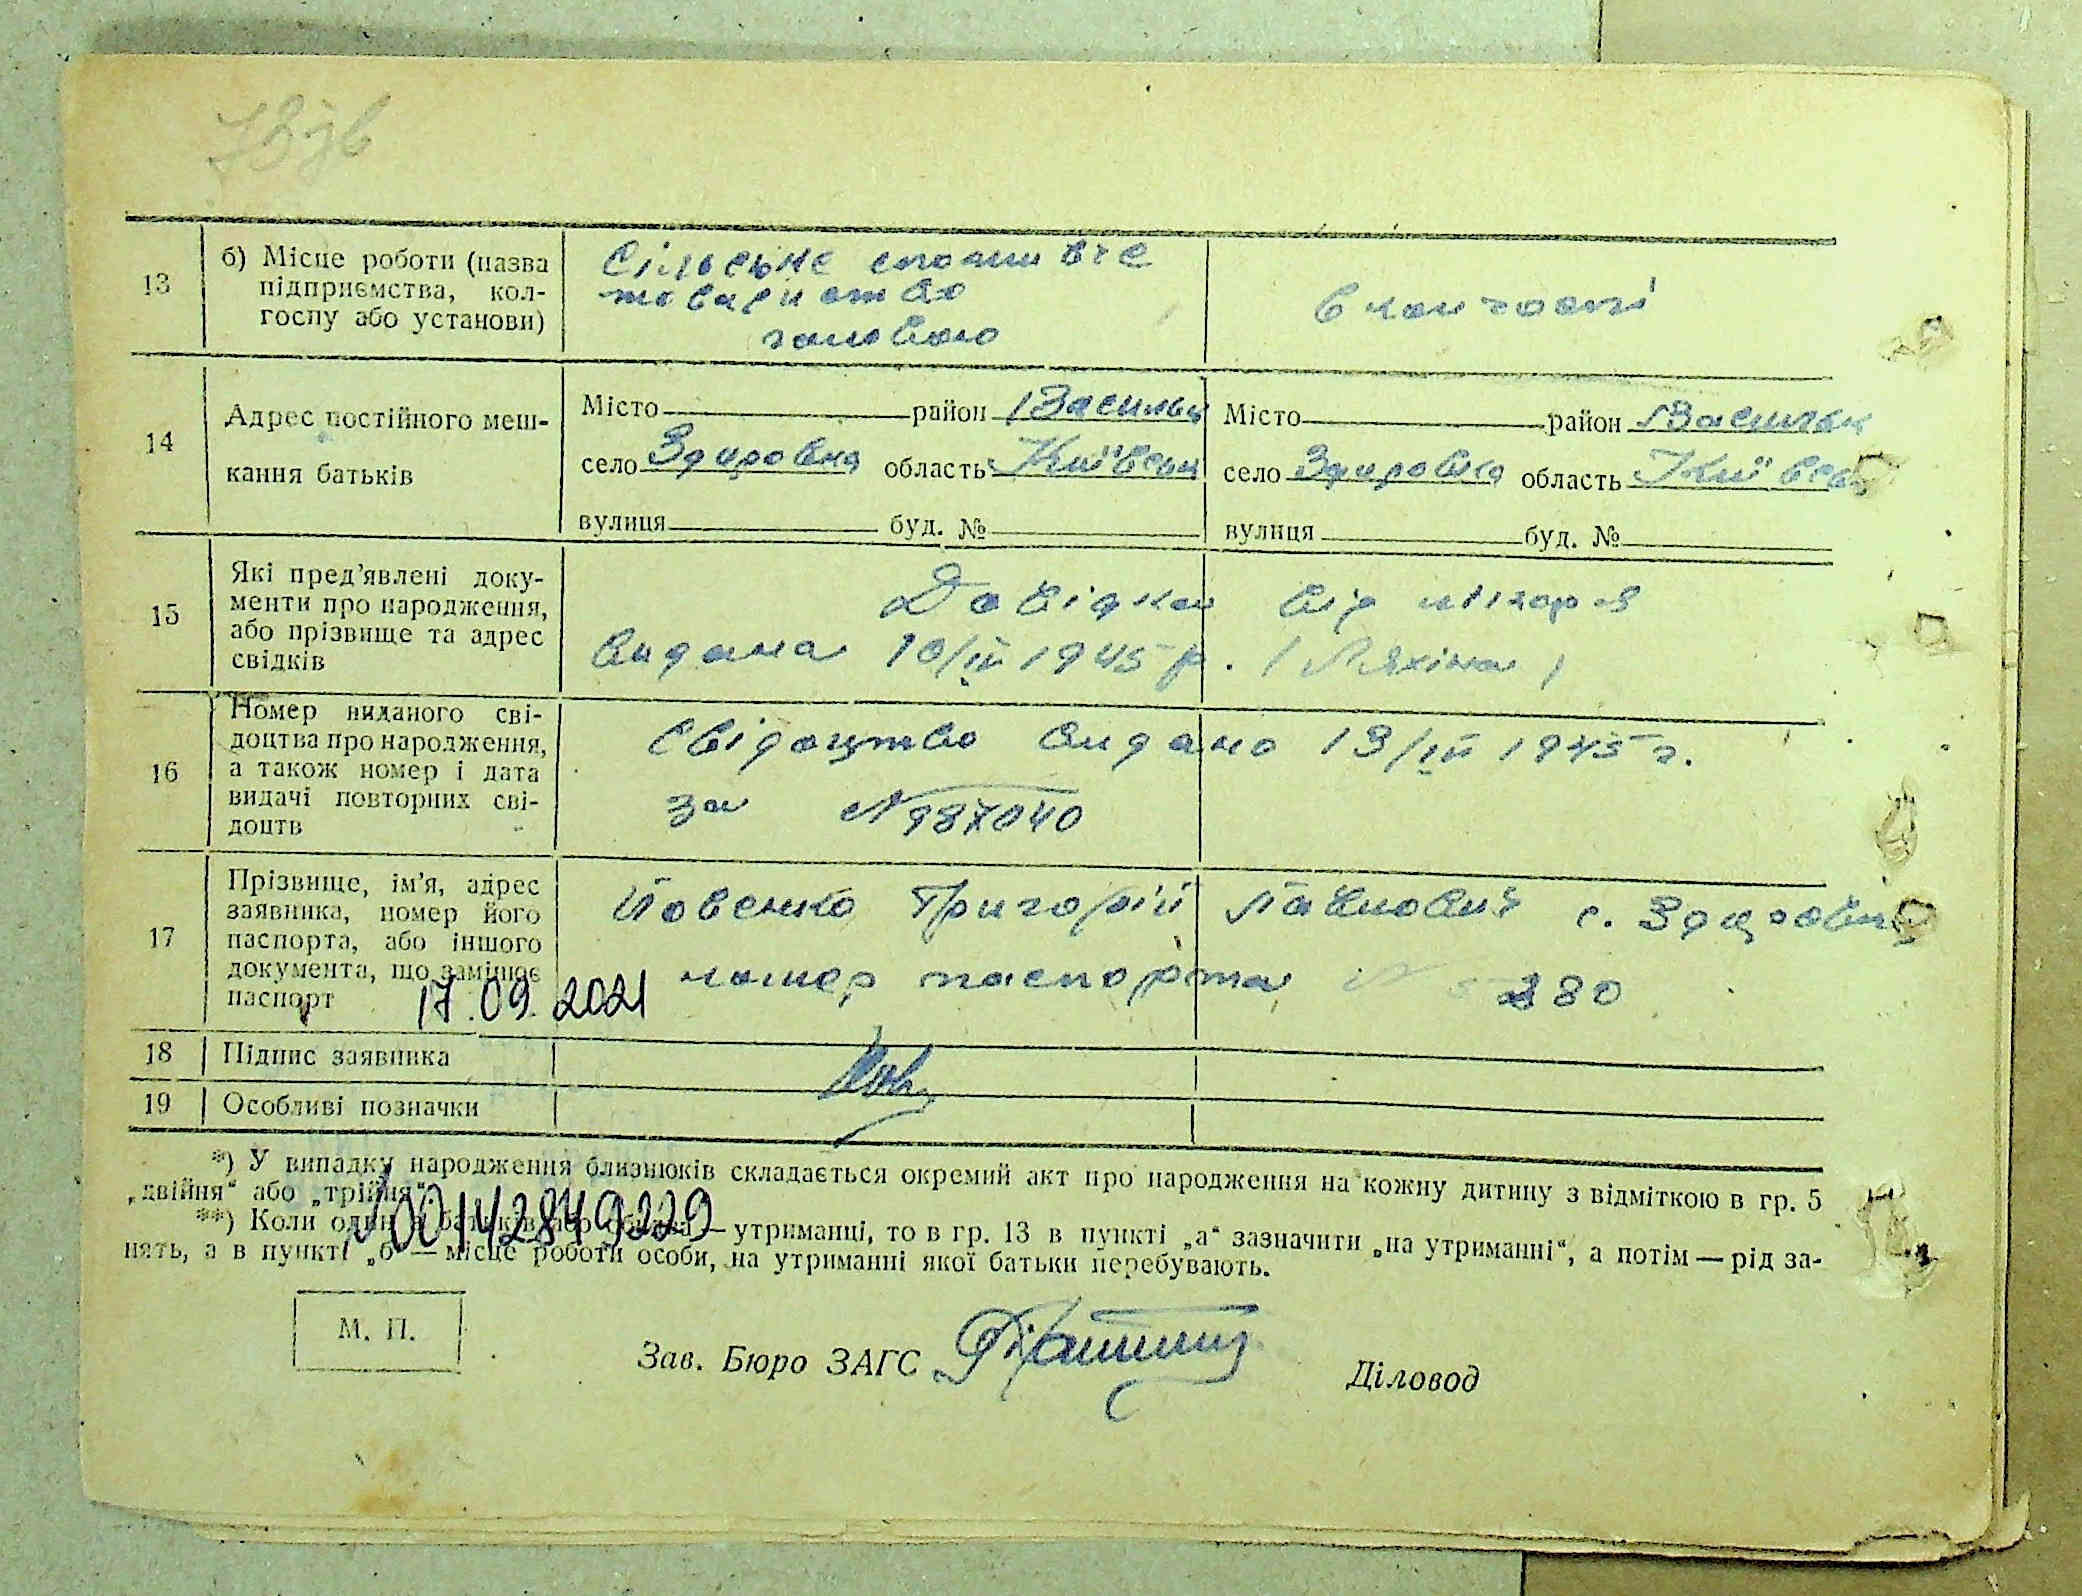 13
б) Місце роботи (назва
підприємства, кол-
госпу або установи)
Сільське споживче
товариство
головою
14
Адрес постійного меш-
кання батьків
Місто район Васильк
село Здоровка область Київськ
вулиця буд. №
Місто район Васильк
село Здоровка область Київськ
вулиця буд. №
15
Які пред'явлені доку-
менти про народження,
або прізвище та адрес
свідків
Довідка від
видана 10/III 1945 р. (Ляхівка)
16
Номер виданого сві-
доцтва про народження,
а також номер і дата
видачі повторних сві-
доцтв
Свідоцтво видано 13/III 1945 г.
за № 987040
17
Прізвище, ім'я, адрес
заявника, номер його
паспорта, або іншого
документа, що заміщає
паспорт
17.09.2021
Йовенко Григорій Павлович с. Здоровка
номер паспорта № 380
18 Підпис заявника
19 Особливі позначки
*) У випадку народження близнюків складається окремий акт про народження на кожну дитину з відміткою в гр. 5
„двійня“ або „трійня“.
00142849229
**) Коли один з батьків або обидва — утриманці, то в гр. 13 в пункті „а“ зазначити „на утриманні“, а потім — рід за-
нять, а в пункті „б“ — місце роботи особи, на утриманні якої батьки перебувають.
М. П.
Зав. Бюро ЗАГС
Діловод